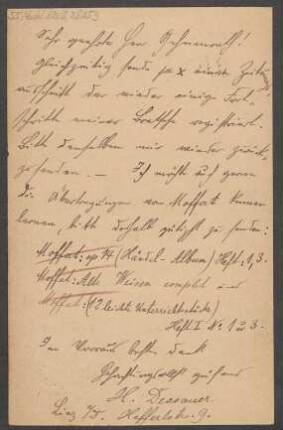 Sehr geehrter Herr Geheimrath!
Gleichzeitig sende p x einen Zeitungs
ausschnitt der wieder einige Fort-
schritte meiner Bratsche registriert.
Bitte denselben mir wieder zurück-
zusenden. — Ich möcht auch gerne
die Übertragungen von Moffat kennen
lernen, bitte deshalb gütigst zu senden:
Moffat: op 14 (Händel-Album) Heft: 1, 3.
Moffat: Alte Weisen complet und
Moffat: (12 leichte Unterrichtsstücke)
Heft I No 1 u 3.
Im Voraus besten Dank
Hochachtungsvollst grüßend
H. Dessauer
Linz a/D.